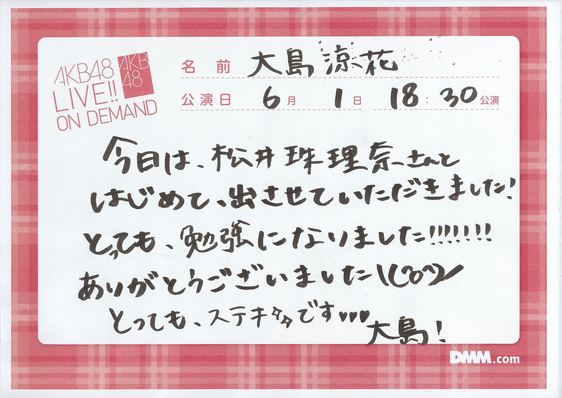 AKB48
LIVE!!
ON DEMAND
AKB
48
名前 大島涼花
公演日 6月 1日 18:30公演
今日は、松井珠理奈さんと
はじめて、出させていただきました!
とっても、勉強になりました!!!!!!!
ありがとうございました\(^o^)/
とっても、ステキタタです♥♥♥
大島!
DMM.com